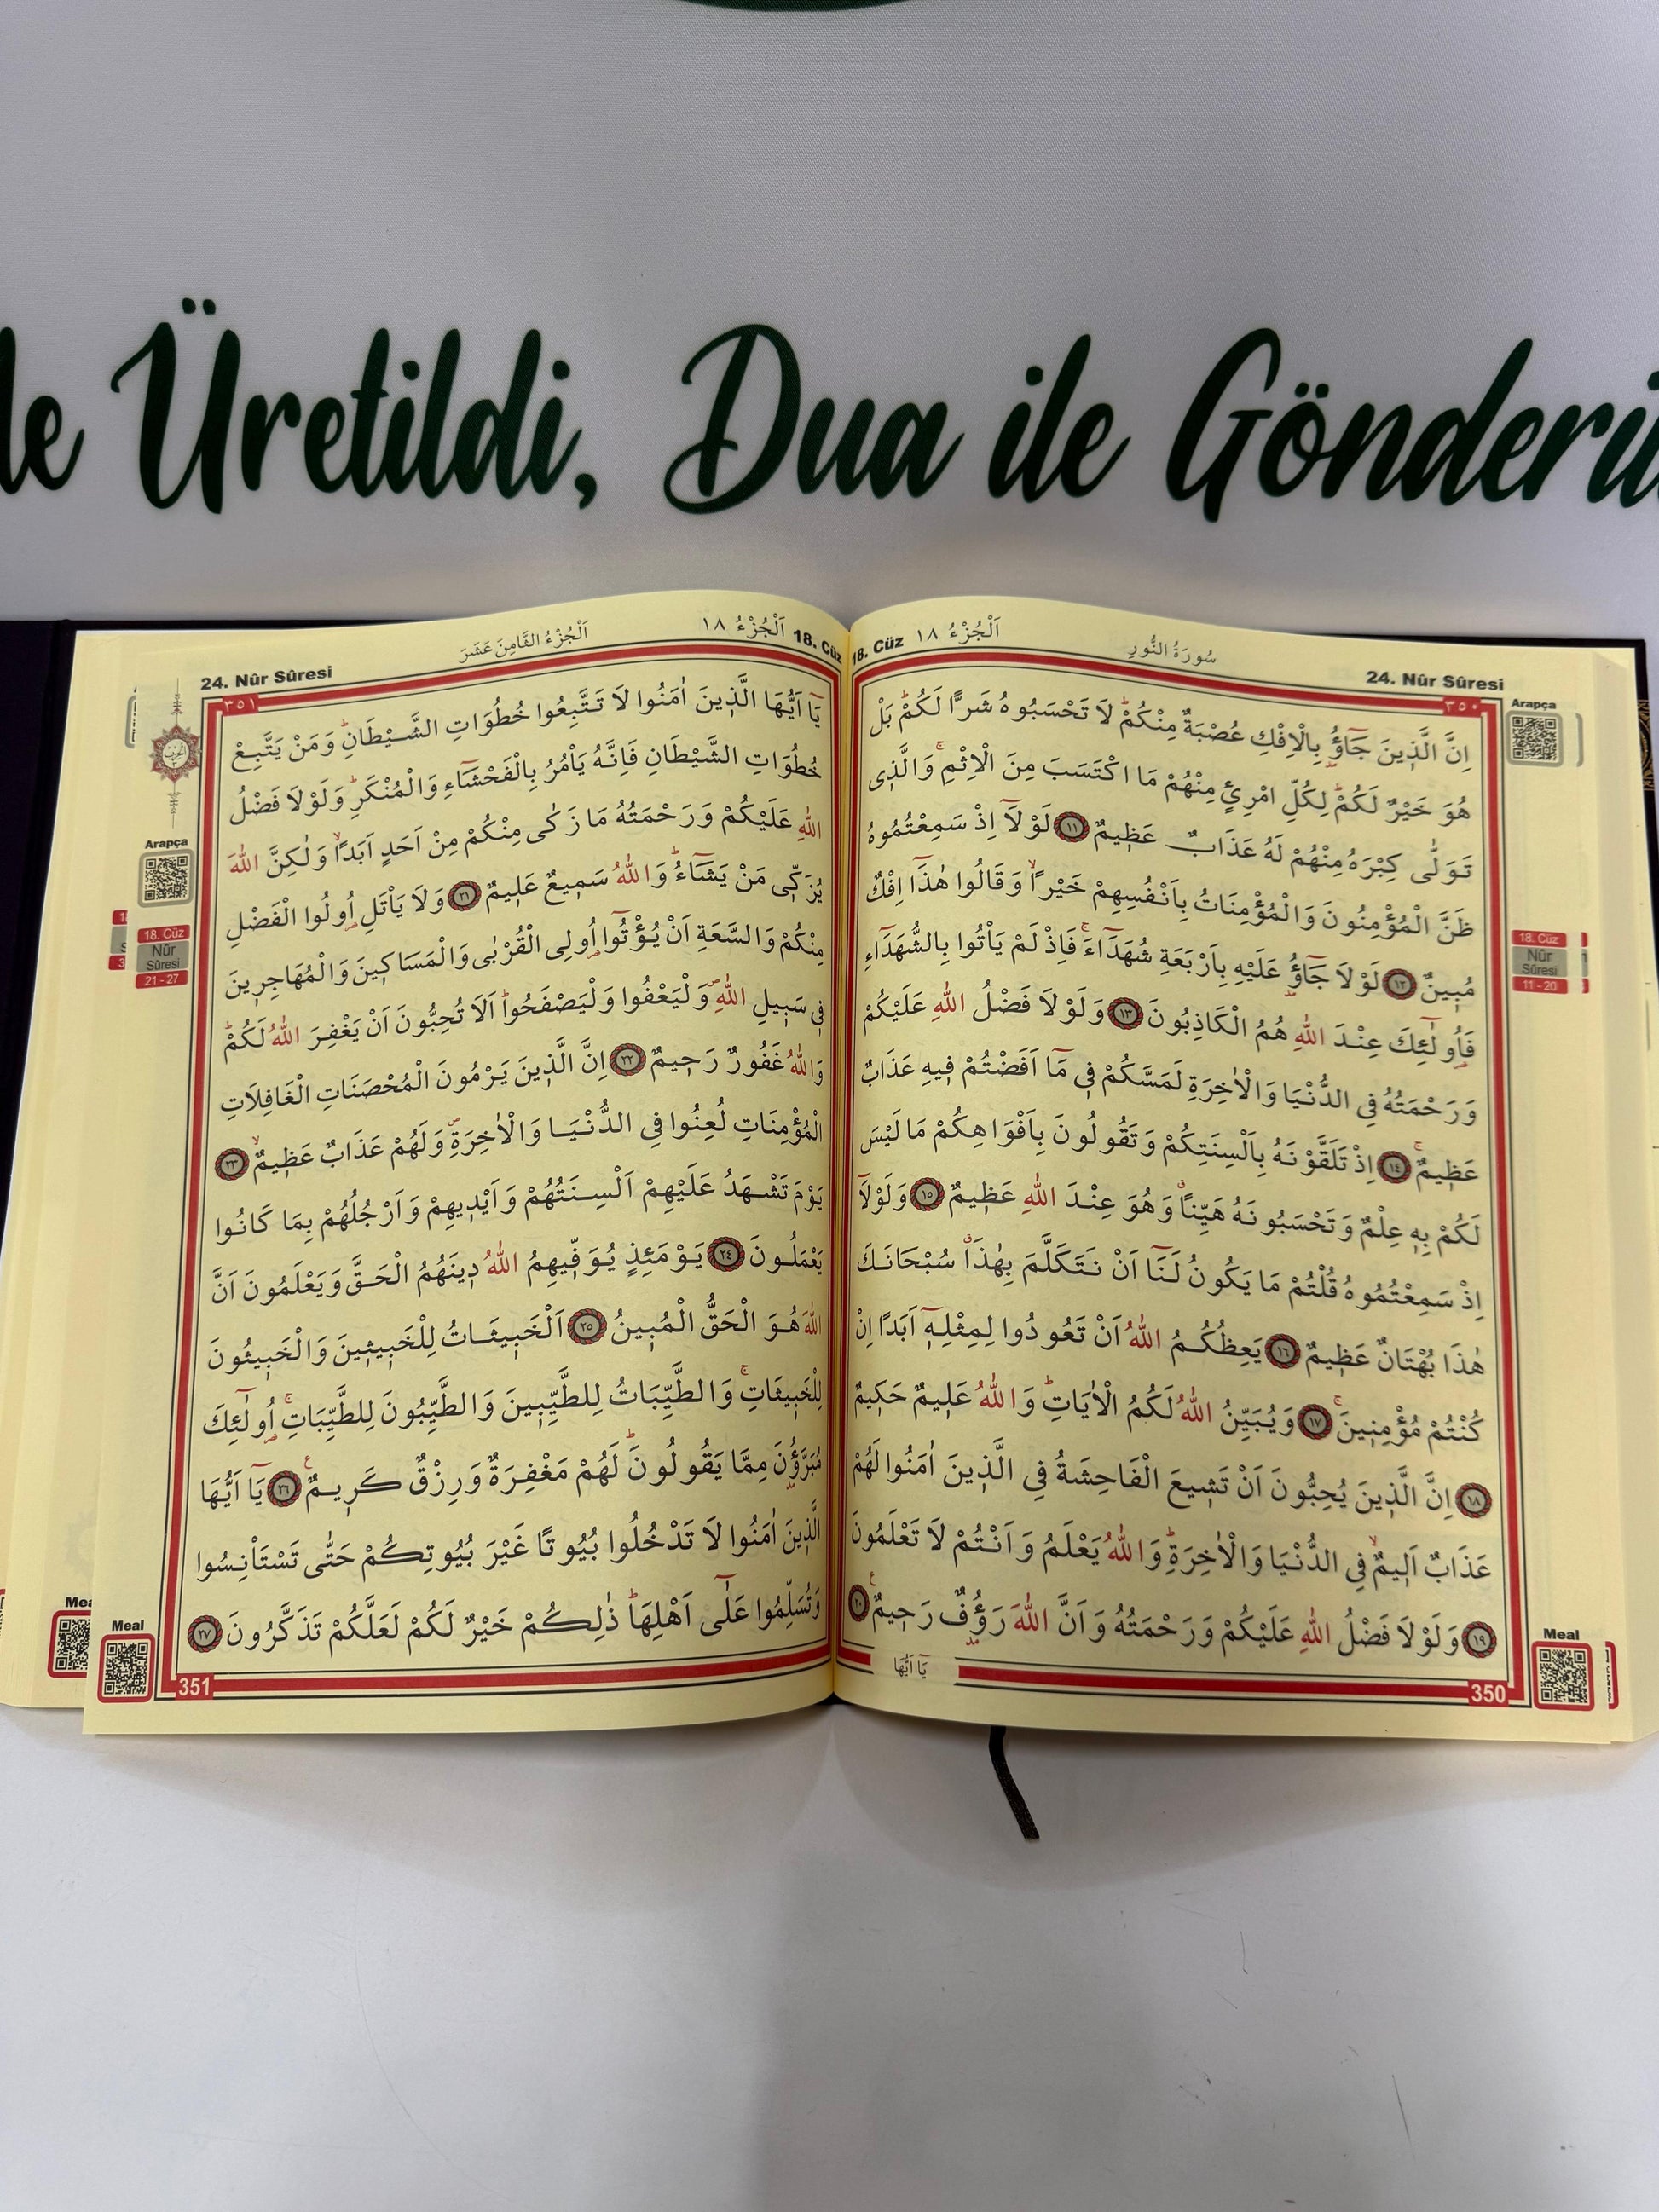 le Üretildi, Dua ile Gönderil
24. Nûr Sûresi
سُورَةُ النُّورِ
اَلْجُزْءُ ١٨
18. Cüz
٣٥٠
اِنَّ الَّذ۪ينَ جَٓاؤُ بِالْاِفْكِ عُصْبَةٌ مِنْكُمْۜ لَا تَحْسَبُوهُ شَراًّ لَكُمْۜ بَلْ
هُوَ خَيْرٌ لَكُمْۜ لِكُلِّ امْرِئٍ مِنْهُمْ مَا اكْتَسَبَ مِنَ الْاِثْمِۚ وَالَّذ۪ى
تَوَلّٰى كِبْرَهُ مِنْهُمْ لَهُ عَذَابٌ عَظ۪يمٌ ١١ لَوْلَٓا اِذْ سَمِعْتُمُوهُ
ظَنَّ الْمُؤْمِنُونَ وَالْمُؤْمِنَاتُ بِاَنْفُسِهِمْ خَيْراًۙ وَقَالُوا هٰذَٓا اِفْكٌ
مُب۪ينٌ ١٢ لَوْلَا جَٓاؤُ عَلَيْهِ بِاَرْبَعَةِ شُهَدَٓاءَۚ فَاِذْ لَمْ يَأْتُوا بِالشُّهَدَٓاءِ
فَاُو۬لٰٓئِكَ عِنْدَ اللّٰهِ هُمُ الْكَاذِبُونَ ١٣ وَلَوْلَا فَضْلُ اللّٰهِ عَلَيْكُمْ
وَرَحْمَتُهُ فِى الدُّنْيَا وَالْاٰخِرَةِ لَمَسَّكُمْ ف۪ى مَٓا اَفَضْتُمْ ف۪يهِ عَذَابٌ
عَظ۪يمٌۚ ١٤ اِذْ تَلَقَّوْنَهُ بِاَلْسِنَتِكُمْ وَتَقُولُونَ بِاَفْوَاهِكُمْ مَا لَيْسَ
لَكُمْ بِه۪ عِلْمٌ وَتَحْسَبُونَهُ هَيِّناًۗ وَهُوَ عِنْدَ اللّٰهِ عَظ۪يمٌ ١٥ وَلَوْلَٓا
اِذْ سَمِعْتُمُوهُ قُلْتُمْ مَا يَكُونُ لَنَٓا اَنْ نَتَكَلَّمَ بِهٰذَاۗ سُبْحَانَكَ
هٰذَا بُهْتَانٌ عَظ۪يمٌ ١٦ يَعِظُكُمُ اللّٰهُ اَنْ تَعُودُوا لِمِثْلِه۪ٓ اَبَداً اِنْ
كُنْتُمْ مُؤْمِن۪ينَۚ ١٧ وَيُبَيِّنُ اللّٰهُ لَكُمُ الْاٰيَاتِۜ وَاللّٰهُ عَل۪يمٌ حَك۪يمٌ
١٨ اِنَّ الَّذ۪ينَ يُحِبُّونَ اَنْ تَش۪يعَ الْفَاحِشَةُ فِى الَّذ۪ينَ اٰمَنُوا لَهُمْ
عَذَابٌ اَل۪يمٌۙ فِى الدُّنْيَا وَالْاٰخِرَةِۜ وَاللّٰهُ يَعْلَمُ وَاَنْتُمْ لَا تَعْلَمُونَ
١٩ وَلَوْلَا فَضْلُ اللّٰهِ عَلَيْكُمْ وَرَحْمَتُهُ وَاَنَّ اللّٰهَ رَؤُ۫فٌ رَح۪يمٌ ٢٠
يَٓا اَيُّهَا
350
Arapça
18. Cüz
Nûr
Sûresi
11 - 20
Meal
18. Cüz
اَلْجُزْءُ ١٨
اَلْجُزْءُ الثَّامِنَ عَشَرَ
24. Nûr Sûresi
٣٥١
يَٓا اَيُّهَا الَّذ۪ينَ اٰمَنُوا لَا تَتَّبِعُوا خُطُوَاتِ الشَّيْطَانِۜ وَمَنْ يَتَّبِعْ
خُطُوَاتِ الشَّيْطَانِ فَاِنَّهُ يَأْمُرُ بِالْفَحْشَٓاءِ وَالْمُنْكَرِۜ وَلَوْلَا فَضْلُ
اللّٰهِ عَلَيْكُمْ وَرَحْمَتُهُ مَا زَكٰى مِنْكُمْ مِنْ اَحَدٍ اَبَداًۙ وَلٰكِنَّ اللّٰهَ
يُزَكّ۪ى مَنْ يَشَٓاءُۜ وَاللّٰهُ سَم۪يعٌ عَل۪يمٌ ٢١ وَلَا يَأْتَلِ اُو۬لُوا الْفَضْلِ
مِنْكُمْ وَالسَّعَةِ اَنْ يُؤْتُٓوا اُو۬لِى الْقُرْبٰى وَالْمَسَاك۪ينَ وَالْمُهَاجِر۪ينَ
ف۪ى سَب۪يلِ اللّٰهِۖ وَلْيَعْفُوا وَلْيَصْفَحُواۜ اَلَا تُحِبُّونَ اَنْ يَغْفِرَ اللّٰهُ لَكُمْۜ
وَاللّٰهُ غَفُورٌ رَح۪يمٌ ٢٢ اِنَّ الَّذ۪ينَ يَرْمُونَ الْمُحْصَنَاتِ الْغَافِلَاتِ
الْمُؤْمِنَاتِ لُعِنُوا فِى الدُّنْيَا وَالْاٰخِرَةِۖ وَلَهُمْ عَذَابٌ عَظ۪يمٌۙ ٢٣
يَوْمَ تَشْهَدُ عَلَيْهِمْ اَلْسِنَتُهُمْ وَاَيْد۪يهِمْ وَاَرْجُلُهُمْ بِمَا كَانُوا
يَعْمَلُونَ ٢٤ يَوْمَئِذٍ يُوَفّ۪يهِمُ اللّٰهُ د۪ينَهُمُ الْحَقَّ وَيَعْلَمُونَ اَنَّ
اللّٰهَ هُوَ الْحَقُّ الْمُب۪ينُ ٢٥ اَلْخَب۪يثَاتُ لِلْخَب۪يث۪ينَ وَالْخَب۪يثُونَ
لِلْخَب۪يثَاتِۚ وَالطَّيِّبَاتُ لِلطَّيِّب۪ينَ وَالطَّيِّبُونَ لِلطَّيِّبَاتِۚ اُو۬لٰٓئِكَ
مُبَرَّؤُ۫نَ مِمَّا يَقُولُونَۜ لَهُمْ مَغْفِرَةٌ وَرِزْقٌ كَر۪يمٌ ٢٦ يَٓا اَيُّهَا
الَّذ۪ينَ اٰمَنُوا لَا تَدْخُلُوا بُيُوتًا غَيْرَ بُيُوتِكُمْ حَتّٰى تَسْتَأْنِسُوا
وَتُسَلِّمُوا عَلٰٓى اَهْلِهَاۜ ذٰلِكُمْ خَيْرٌ لَكُمْ لَعَلَّكُمْ تَذَكَّرُونَ ٢٧
351
Arapça
18. Cüz
Nûr
Sûresi
21 - 27
Meal